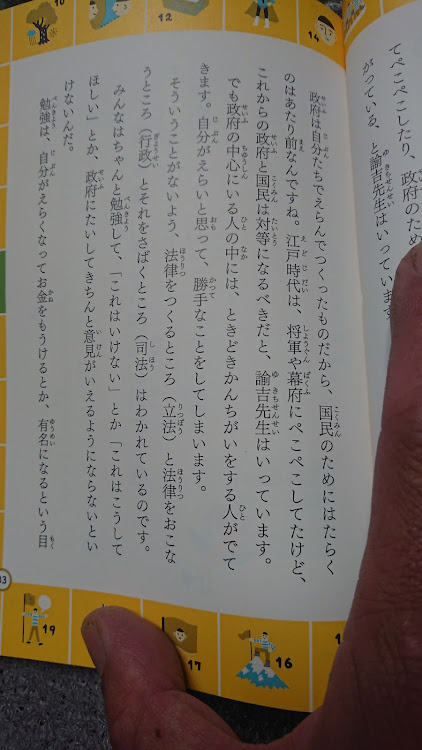 てぺこぺこしたり、政府のため
がっている、と諭吉先生はいっています
政府は自分たちでえらんでつくったものだから、国民のためにはたらく
のはあたり前なんですね。江戸時代は、将軍や幕府にぺこぺこしてたけど、
これからの政府と国民は対等になるべきだと、諭吉先生はいっています。
でも政府の中心にいる人の中には、ときどきかんちがいをする人がでて
きます。自分がえらいと思って、勝手なことをしてしまいます。
そういうことがないよう、法律をつくるところ（立法）と法律をおこな
うところ（行政）とそれをさばくところ（司法）はわかれているのです。
みんなはちゃんと勉強して、「これはいけない」とか「これはこうして
ほしい」とか、政府にたいしてきちんと意見がいえるようにならないとい
けないんだ。
勉強は、自分がえらくなってお金をもうけるとか、有名になるという目
12
14
19
17
16